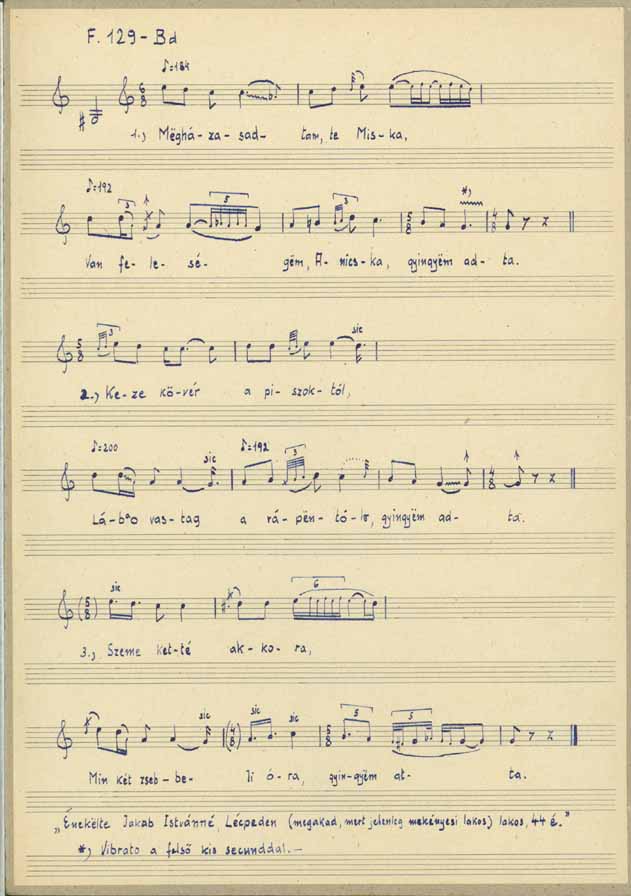 F. 129-Bd
♪=184
6/8
1.) Mëghá-za-sad-tam, te Mis-ka,
♪=192
3 5 3 *)
5/8 4/8
Van fe-le-sé-gëm, A-nics-ka, gyingyëm ad-ta.
3 sic
5/8
2.) Ke-ze kö-vér a pi-szok-tól,
♪=200 sic ♪=192 3
4/8
Lá-bao vas-tag a rá-pën-tó-tó, gyingyëm ad-ta.
sic 6
(5/8)
3.) Szeme ket-té ak-ko-ra,
sic sic sic 5 5
(4/8) 5/8
Min két zseb-be-li ó-ra, gyin-gyëm at-ta.
„Énekëlte Jakab Istvánné, Lécpeden (megakad, mert jelenleg mekényesi lakos) lakos, 44 é."
*) Vibrato a felső kis secunddal.—